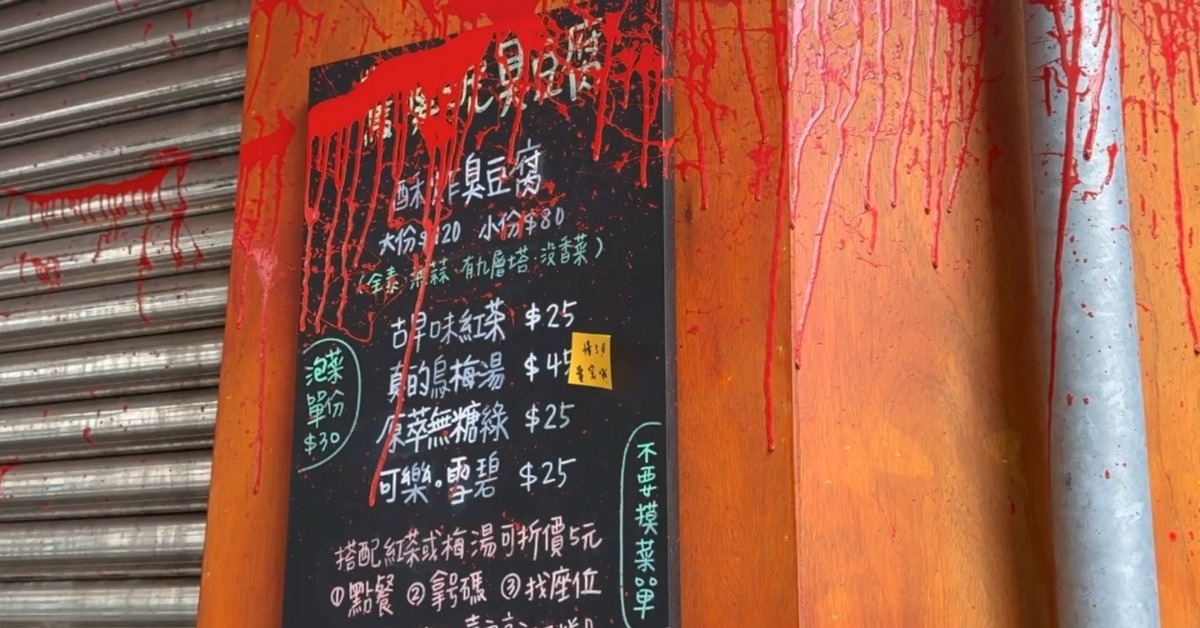 臭豆腐
酥炸臭豆腐
大份$120 小份$80
(全素 無蒜 有九層塔 沒香菜)
古早味紅茶 $25
真的烏梅湯 $45
原萃無糖綠 $25
可樂。雪碧 $25
泡菜
單份
$30
搭配紅茶或梅湯可折價5元
①點餐 ②拿號碼 ③找座位
不要摸菜單